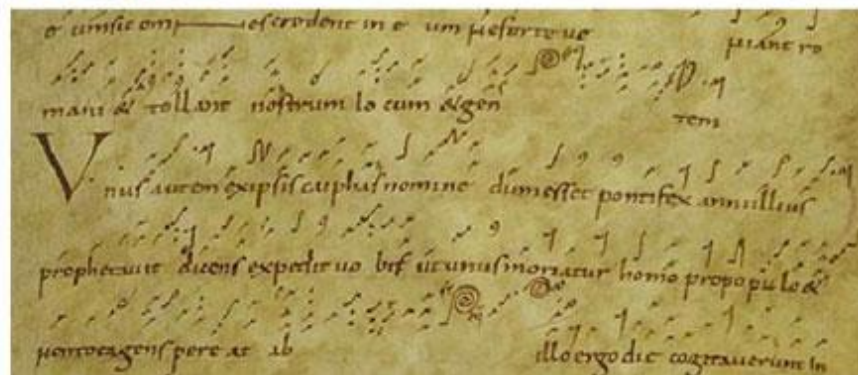 e umsic om es credent in e um neforte ue niant ro
mani & tollant nostrum lo cum &gen tem
Vnus autem exipsis caiphas nomine dum esset pontifex anni illius
prophetauit dicens expedit uo bis utunus moriatur homo propopulo &
nontotagens pere at ab illo ergo die cogitauerunt in